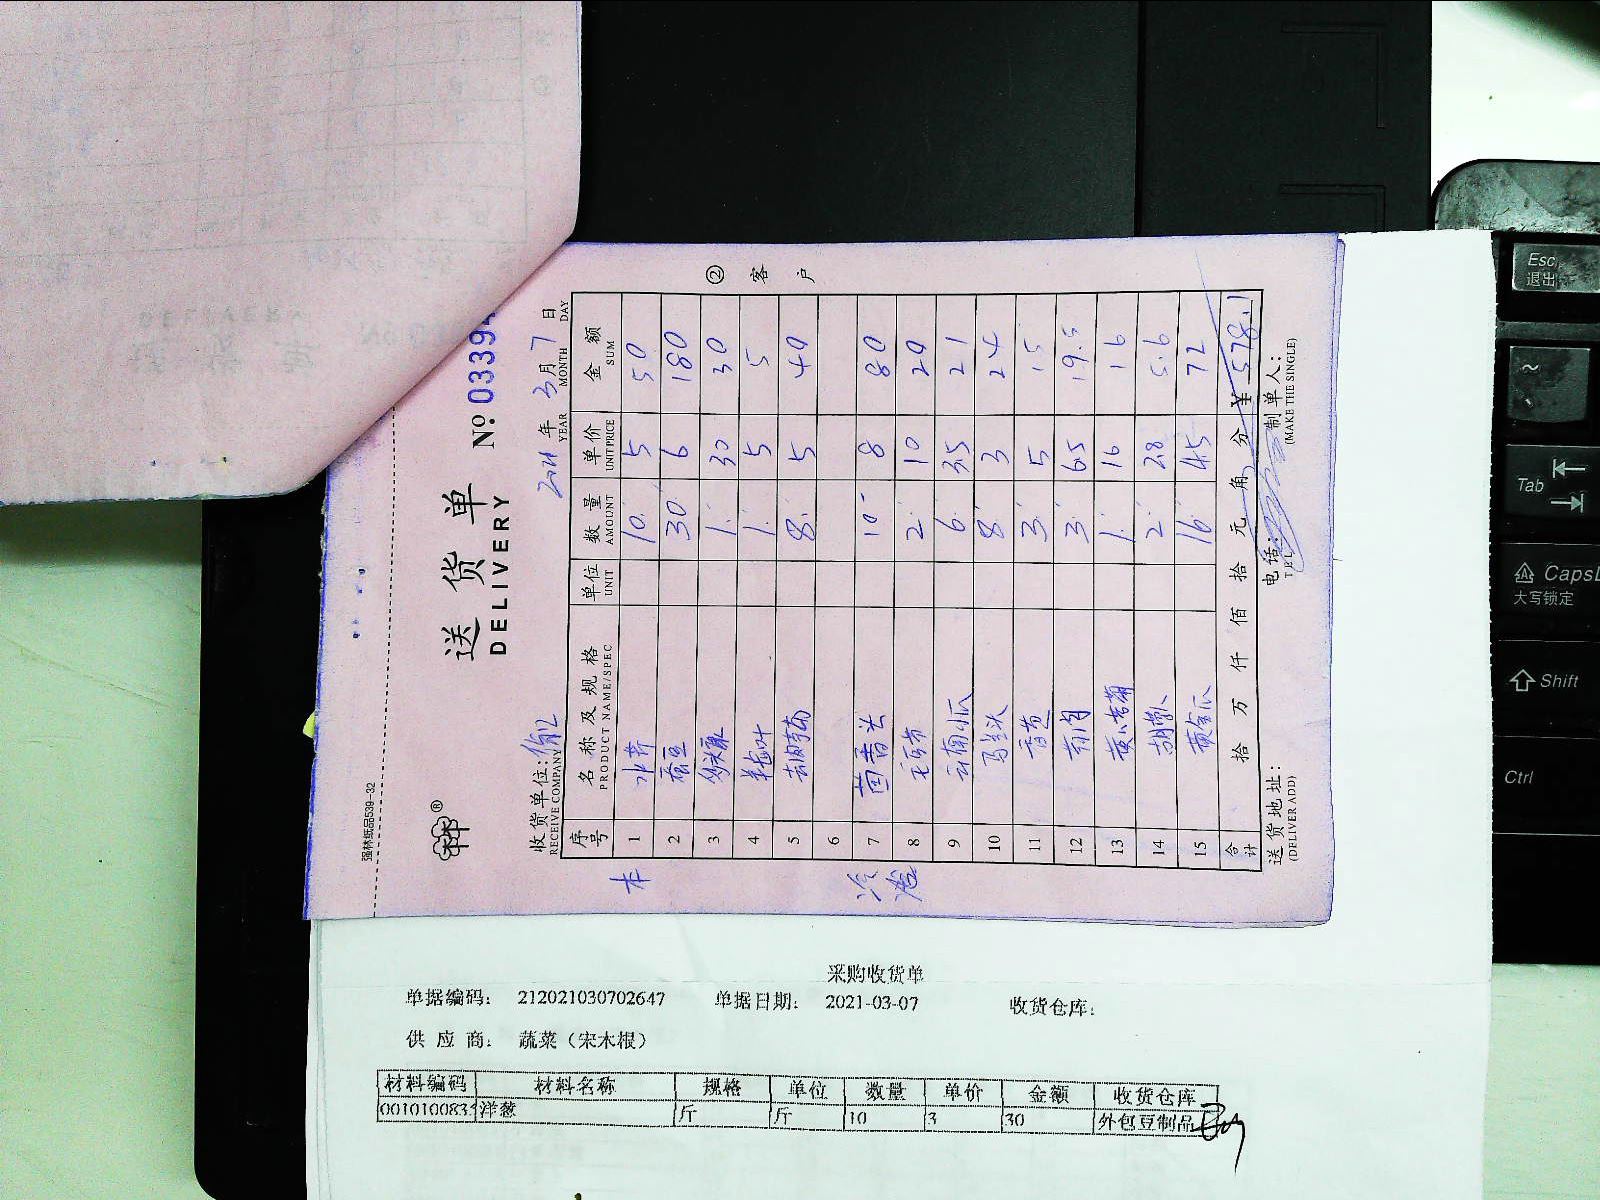 强林纸品539-32
送 货 单
DELIVERY
№ 0339
收货单位:
RECEIVE COMPANY
2021 年 3 月 7 日
YEAR MONTH DAY
② 客 户
序号 名称及规格 单位 数量 单价 金额
PRODUCT NAME/SPEC UNIT AMOUNT UNITPRICE SUM
1 水芹 10 5 50
2 蚕豆 30 6 180
3 1 30 30
4 1 5 5
5 8 5 40
6
7 茴香头 10 8 80
8 2 10 20
9 云南小瓜 6 3.5 21
10 马兰头 8 3 24
11 香葱 3 5 15
12 3 6.5 19.5
13 1 16 16
14 胡萝卜 2 2.8 5.6
15 黄金瓜 16 4.5 72
合计 拾 万 仟 佰 拾 元 角 分 ¥ 578.1
送货地址: 电话: 制单人:
(DELIVER ADD) TEL (MAKE THE SINGLE)
采购收货单
单据编码: 212021030702647 单据日期: 2021-03-07 收货仓库:
供 应 商: 蔬菜(宋木根)
材料编码 材料名称 规格 单位 数量 单价 金额 收货仓库
001010083 洋葱 斤 斤 10 3 30 外包豆制品
Esc
退出
~
Tab
CapsL
大写锁定
Shift
Ctrl